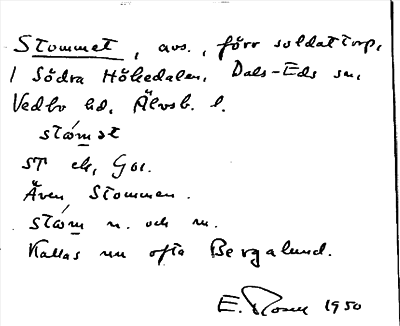 Stommet, avs., förr soldattorp,
i Södra Hökedalen, Dals-Eds sn,
Vedbo hd, Älvsb. l.
stóm̲et
ST ek, Gos.
Även Stommen.
stóm̲ n. och m.
Kallas nu ofta Bergalund.
E. 1950